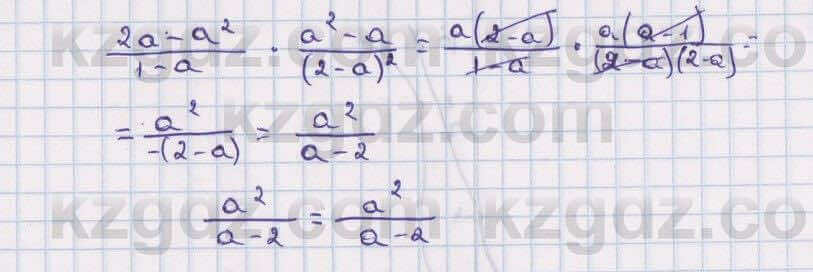 (2a - a²)/(1 - a) · (a² - a)/(2 - a)² = a(2 - a)/(1 - a) · a(a - 1)/(2 - a)(2 - a) =
= a²/-(2 - a) = a²/(a - 2)
a²/(a - 2) = a²/(a - 2)
kzgdz.com kzgdz.co
kzgdz.com kzgdz.co
kzgdz.com kzgdz.co